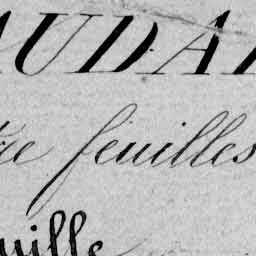 AUDAI
tre feuilles
uille